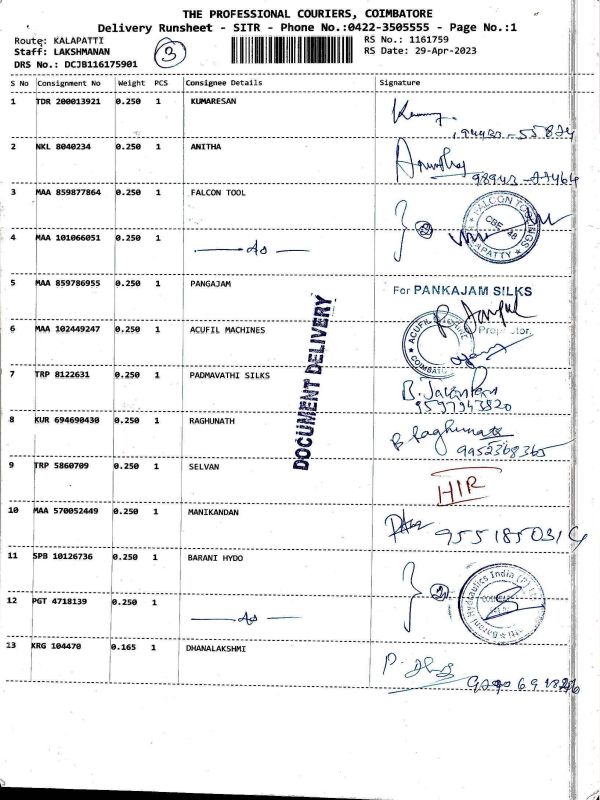 THE PROFESSIONAL COURIERS, COIMBATORE
Delivery Runsheet - SITR - Phone No.:0422-3505555 - Page No.:1
Route: KALAPATTI
Staff: LAKSHMANAN
DRS No.: DCJB116175901
3
RS No.: 1161759
RS Date: 29-Apr-2023
S No Consignment No Weight PCS Consignee Details Signature
1 TDR 200013921 0.250 1 KUMARESAN
2 NKL 8040234 0.250 1 ANITHA
3 MAA 859877864 0.250 1 FALCON TOOL
2
4 MAA 101066051 0.250 1 do
5 MAA 859786955 0.250 1 PANGAJAM For PANKAJAM SILKS
6 MAA 102449247 0.250 1 ACUFIL MACHINES
7 TRP 8122631 0.250 1 PADMAVATHI SILKS
8 KUR 694690430 0.250 1 RAGHUNATH B Raghunath
9952368365
9 TRP 5860709 0.250 1 SELVAN HIR
10 MAA 570052449 0.250 1 MANIKANDAN
11 SPB 10126736 0.250 1 BARANI HYDO
2
12 PGT 4718139 0.250 1 do
13 KRG 104470 0.165 1 DHANALAKSHMI
DOCUMENT DELIVERY